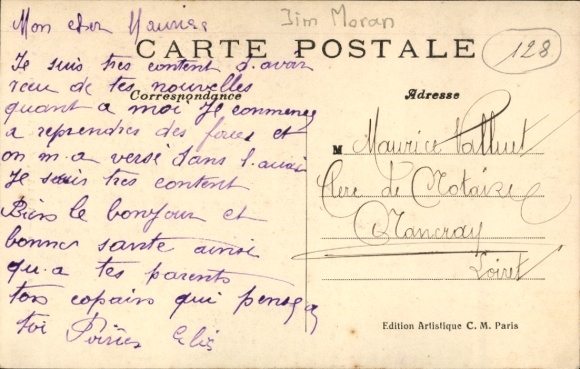 Jim Moran
128
CARTE POSTALE
Correspondance
Adresse
Mon cher Maurice
Je suis tres content d'avoir
recu de tes nouvelles
quant a moi Je commence
a reprendres des forces et
on m a versé dans l.auxi
Je suis tres content
Biens le bonjour et
bonnes santé ainsi
qu.a tes parents
ton copain qui pense a
toi
M Maurice Valluet
Clerc de Notaire
Nancray
Loiret
Edition Artistique C. M. Paris